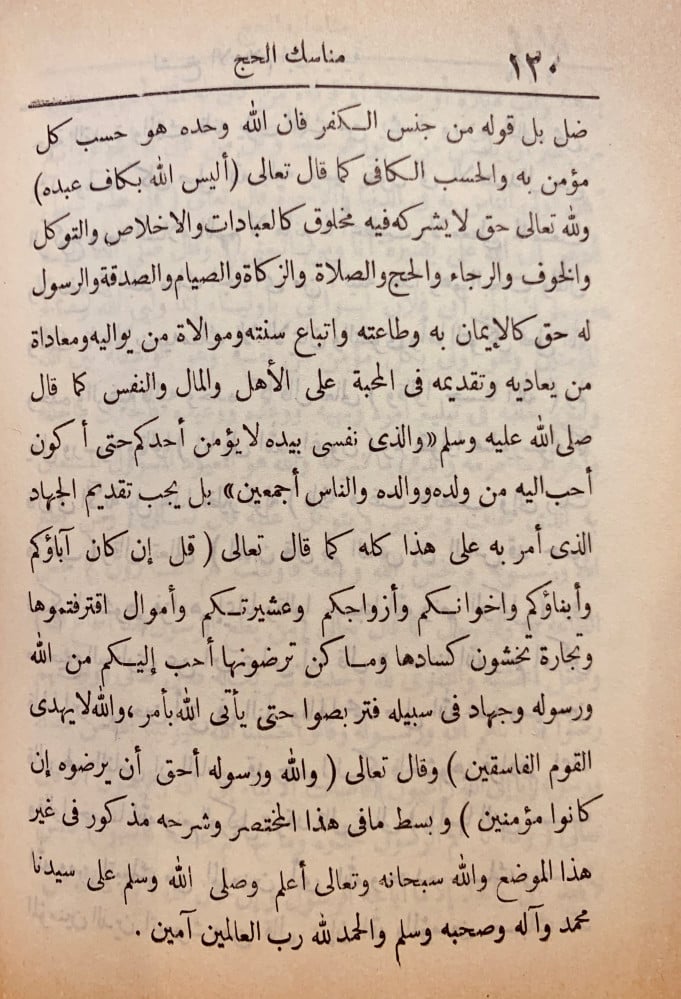 ١٣٠ مناسك الحج
ضل بل قوله من جنس الكفر فان الله وحده هو حسب كل
مؤمن به والحسب الكافى كما قال تعالى (أليس الله بكاف عبده)
ولله تعالى حق لا يشركه فيه مخلوق كالعبادات والاخلاص والتوكل
والخوف والرجاء والحج والصلاة والزكاة والصيام والصدقة والرسول
له حق كالإيمان به وطاعته واتباع سنته وموالاة من يواليه ومعاداة
من يعاديه وتقديمه فى المحبة على الأهل والمال والنفس كما قال
صلى الله عليه وسلم «والذى نفسى بيده لا يؤمن أحدكم حتى أكون
أحب اليه من ولده ووالده والناس أجمعين» بل يجب تقديم الجهاد
الذى أمر به على هذا كله كما قال تعالى ( قل إن كان آباؤكم
وأبناؤكم واخوانكم وأزواجكم وعشيرتكم وأموال اقترفتموها
وتجارة تخشون كسادها ومساكن ترضونها أحب إليكم من الله
ورسوله وجهاد فى سبيله فتربصوا حتى يأتى الله بأمره، والله لا يهدى
القوم الفاسقين ) وقال تعالى ( والله ورسوله أحق أن يرضوه إن
كانوا مؤمنين ) وبسط مافى هذا المختصر وشرحه مذكور فى غير
هذا الموضع والله سبحانه وتعالى أعلم وصلى الله وسلم على سيدنا
محمد وآله وصحبه وسلم والحمد لله رب العالمين آمين .